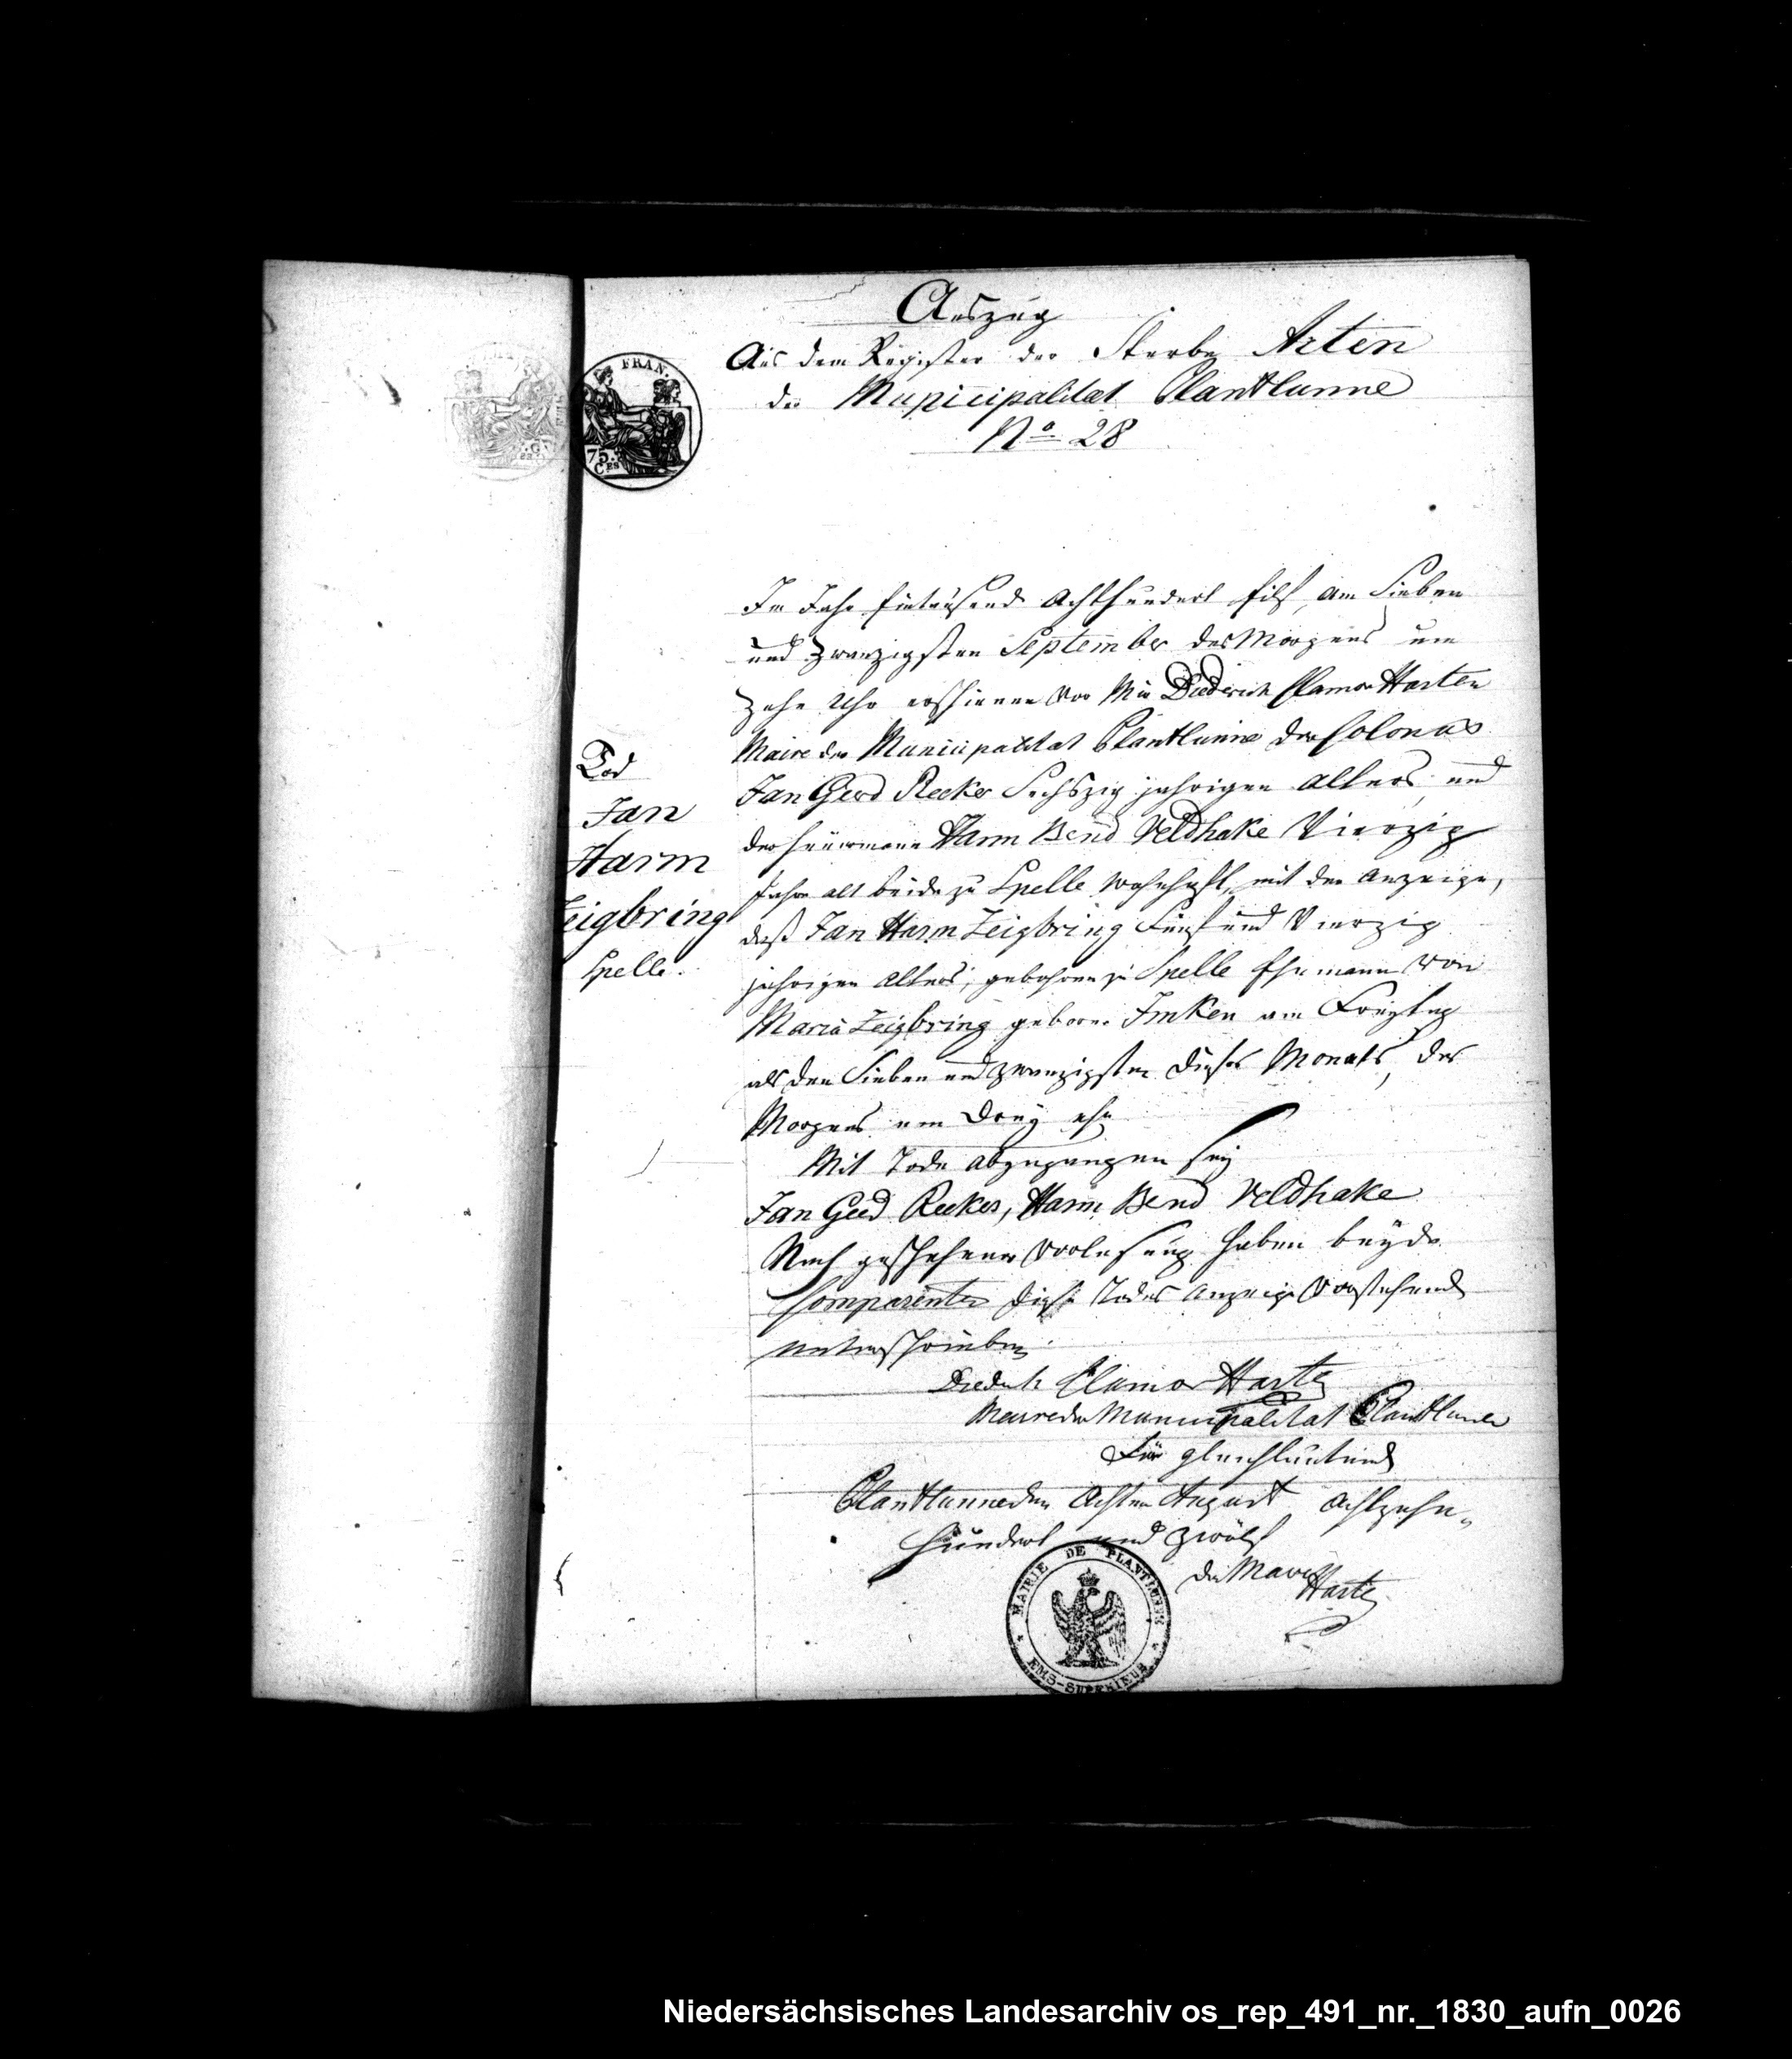 Auszug
Aus dem Register der Sterbe Akten
der Municipalitat Plantlunne
No 28
FRAN.
75.
CES
Im Jahr Eintausend Achthundert Eilf, am Sieben
und zwanzigsten September des Morgens um
Zehn Uhr erschienen vor Mir Diederich Clamor Harten
Maire der Municipalitat Plantlunne der Colonus
Jan Gerd Reeker Sechszig jahrigen Alters und
der Heuermann Harm Bernd Veldhake Vierzig
Jahr alt beide zu Spelle wohnhaft, mit der Anzeige,
daß Jan Harm Zeigbring Fünf und Vierzig
jahrigen Alters, gebohren zu Spelle Ehemann von
Maria Zeigbring geborne Imken am Freytag
als den Sieben und zwanzigsten dieses Monats, des
Morgens um Drey Uhr
Mit Tode abgegangen sey
Jan Gerd Reeker, Harm Bernd Veldhake
Nach geschehener Vorlesung haben beyde
Comparenten diese Todes Anzeige Vorstehend
unterschrieben.
Diederich Clamor Harten
Maire der Municipalitat Plantlunne
Für gleichlautend
Plantlunne den Achten August Achtzehn-
hundert und zwölf
der Maire
Harten
Tod
Jan
Harm
Zeigbring
Spelle.
MAIRIE DE PLANTLUNE
EMS-SUPERIEUR
Niedersächsisches Landesarchiv os_rep_491_nr._1830_aufn_0026